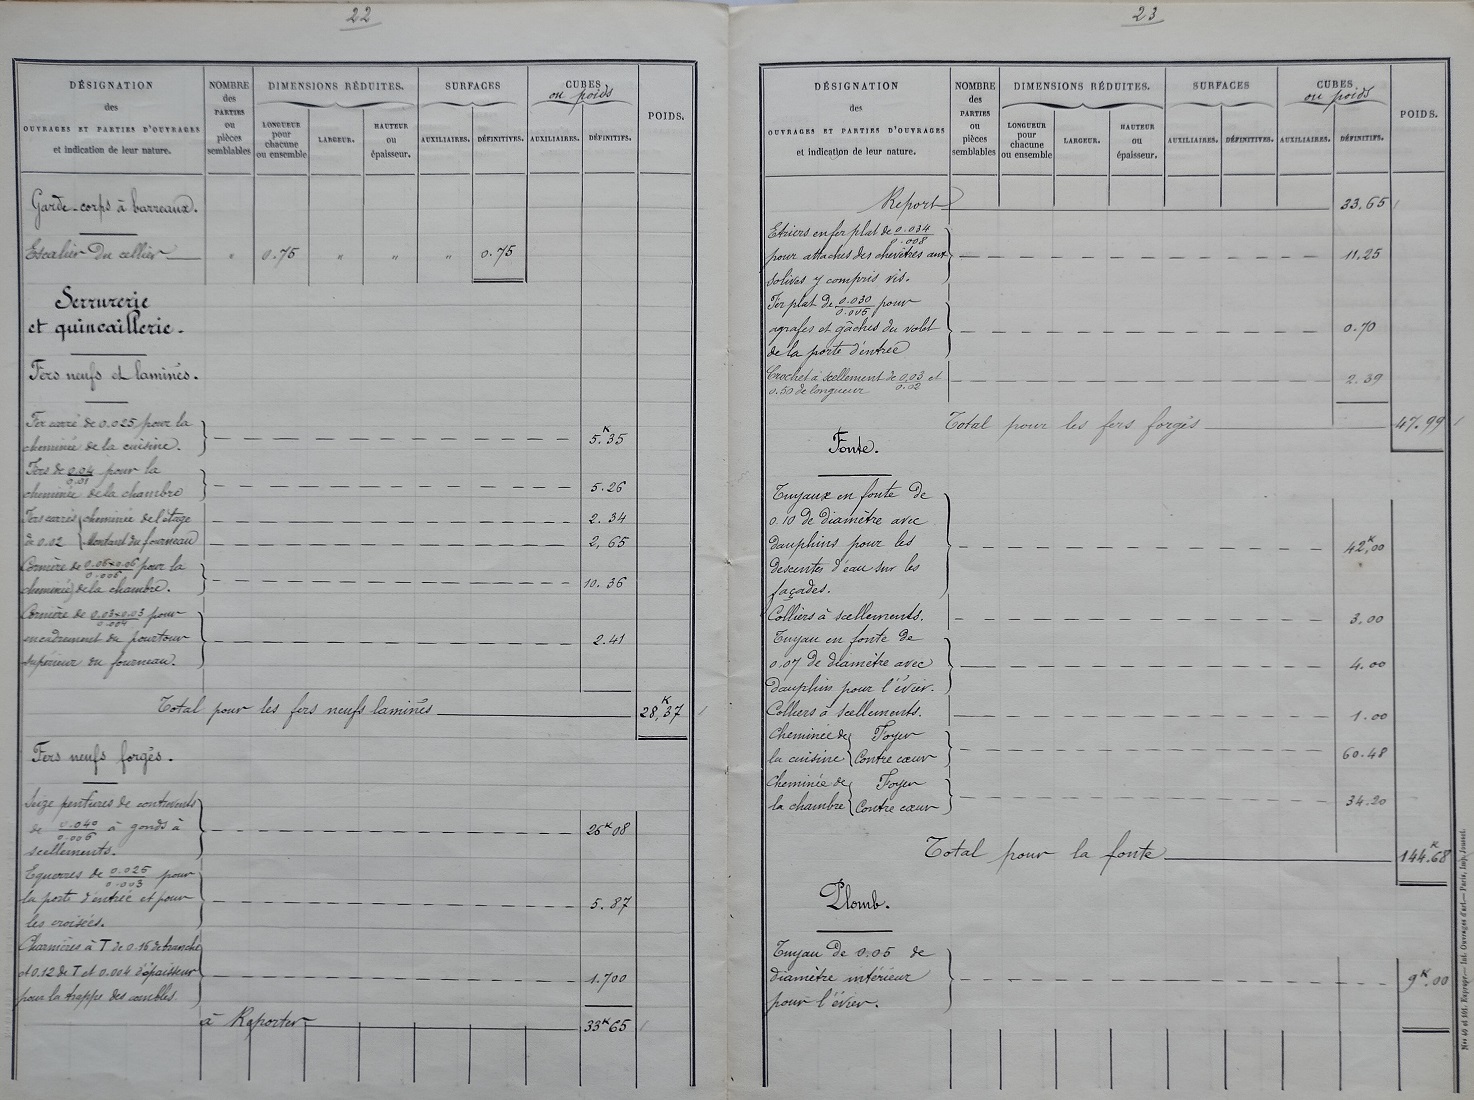 22
DÉSIGNATION
des
OUVRAGES ET PARTIES D'OUVRAGES
et indication de leur nature.
NOMBRE
des
PARTIES
ou
pièces
semblables
DIMENSIONS RÉDUITES.
LONGUEUR
pour
chacune
ou ensemble
LARGEUR.
HAUTEUR
ou
épaisseur.
SURFACES
AUXILIAIRES.
DÉFINITIVES.
CUBES
ou poids
AUXILIAIRES.
DÉFINITIFS.
POIDS.
Garde-corps à barreaux.
Escalier du cellier " 0.75 " " " 0.75
Serrurerie
et quincaillerie.
Fers neufs et laminés.
Fer carré de 0.025 pour la
cheminée de la cuisine. 5.K35
Fers de 0.04/0.01 pour la
cheminée de la chambre 5.26
Fers carrés cheminée de l'étage 2.34
de 0.02 Montant du fourneau 2,65
Cornière de 0.06×0.06/0.006 pour la
cheminée de la chambre. 10.36
Cornière de 0.03×0.03/0.004 pour
encadrement du pourtour 2.41
supérieur du fourneau.
Total pour les fers neufs laminés 28,K37
Fers neufs forgés.
Seize pentures de contrevents
de 0.040/0.006 à gonds à 26K08
scellements.
Equerres de 0.025/0.003 pour
la porte d'entrée et pour 5.87
les croisées.
Charnières à T de 0.16 de branche
et 0.12 de T et 0.004 d'épaisseur 1.700
pour la trappe des combles.
à Raporter 33K65
23
DÉSIGNATION
des
OUVRAGES ET PARTIES D'OUVRAGES
et indication de leur nature.
NOMBRE
des
PARTIES
ou
pièces
semblables
DIMENSIONS RÉDUITES.
LONGUEUR
pour
chacune
ou ensemble
LARGEUR.
HAUTEUR
ou
épaisseur.
SURFACES
AUXILIAIRES.
DÉFINITIVES.
CUBES
ou poids
AUXILIAIRES.
DÉFINITIFS.
POIDS.
Report 33.65
Etriers en fer plat de 0.034/0.008
pour attaches des chevêtres aux 11.25
solives y compris vis.
Fer plat de 0.030/0.006 pour
agrafes et gâches du volet 0.70
de la porte d'entrée
Crochet à scellement de 0.03/0.02 et 2.39
0.50 de longueur
Total pour les fers forgés 47.99
Fonte.
Tuyaux en fonte de
0.10 de diamètre avec
dauphins pour les 42K,00
descentes d'eau sur les
façades.
Colliers à scellements. 3,00
Tuyau en fonte de
0.07 de diamètre avec 4.00
dauphin pour l'évier.
Colliers à scellements. 1.00
Cheminée de Foyer
la cuisine Contre cœur 60.48
Cheminée de Foyer
la chambre Contre cœur 34.20
Total pour la fonte 144.K68
Plomb.
Tuyau de 0.05 de
diamètre intérieur 9K.00
pour l'évier.